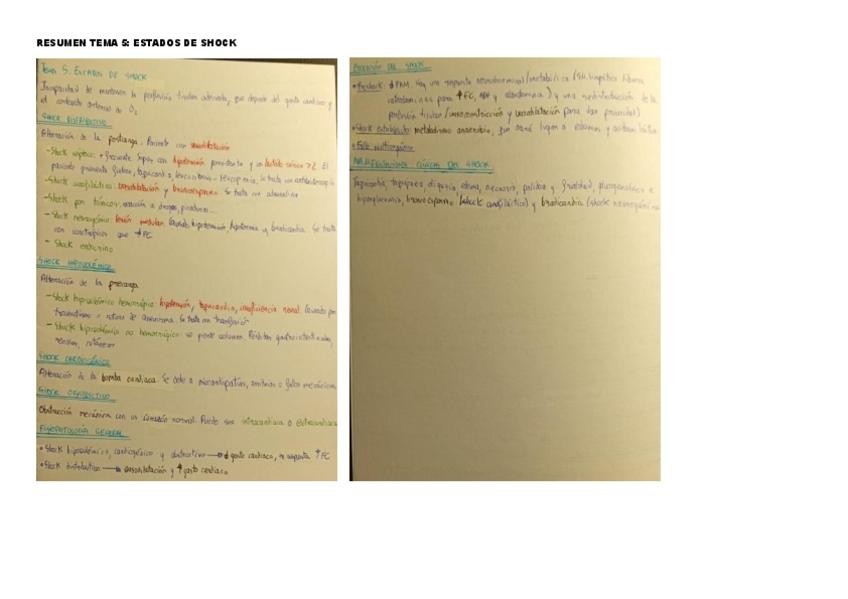 RESUMEN TEMA 5: ESTADOS DE SHOCK
Tema 5. ESTADOS DE SHOCK
Incapacidad de mantener la perfusión tisular adecuada, que depende del gasto cardiaco y
el contenido de O2
SHOCK DISTRIBUTIVO
Alteración de la postcarga. Paciente con vasodilatación
- Shock séptico: + frecuente. Sepsis con hipotensión persistente y un lactato sérico >2. El
paciente presenta fiebre, taquicardia, leucocitosis. Se trata con
- Shock anafiláctico: vasodilatación y broncoespasmo. Se trata con adrenalina
- Shock por tóxicos: reacción a drogas, picaduras...
- Shock neurogénico: lesión medular. Causa hipotensión, hipotermia y bradicardia. Se trata
con que ↑FC
- Shock endocrino
SHOCK HIPOVOLÉMICO
Alteración de la precarga
- Shock hipovolémico hemorrágico: hipotensión, taquicardia, insuficiencia renal. Causado por
traumatismo o rotura de aneurisma. Se trata con transfusión
- Shock hipovolémico no hemorrágico: se pierde volumen. Pérdidas gastrointestinales,
renales, cutáneas
SHOCK CARDIOGÉNICO
Alteración de la bomba cardiaca. Se debe a miocardiopatías, arritmias o fallos mecánicos
SHOCK OBSTRUCTIVO
Obstrucción mecánica con un corazón normal. Puede ser intracardiaca o extracardiaca
FISIOPATOLOGÍA GENERAL
• Shock hipovolémico, cardiogénico y obstructivo → ↓ gasto cardiaco, ↑FC
• Shock distributivo → vasodilatación y ↑ gasto cardiaco
EVOLUCIÓN DEL SHOCK
• Preshock: ↓PAM. Hay una respuesta neurohormonal/metabólica (SN simpático libera
catecolaminas para ↑FC, ADH y aldosterona) y una redistribución de la
perfusión tisular (vasoconstricción y vasodilatación para dar prioridad)
• Shock establecido: metabolismo anaerobio, dando lugar a edema y acidosis láctica
• Fallo multiorgánico
MANIFESTACIONES CLÍNICAS DEL SHOCK
Taquicardia, taquipnea, oliguria, edema, palidez y frialdad, e
hiperglucemia, broncoespasmo (shock anafiláctico) y bradicardia (shock neurogénico)